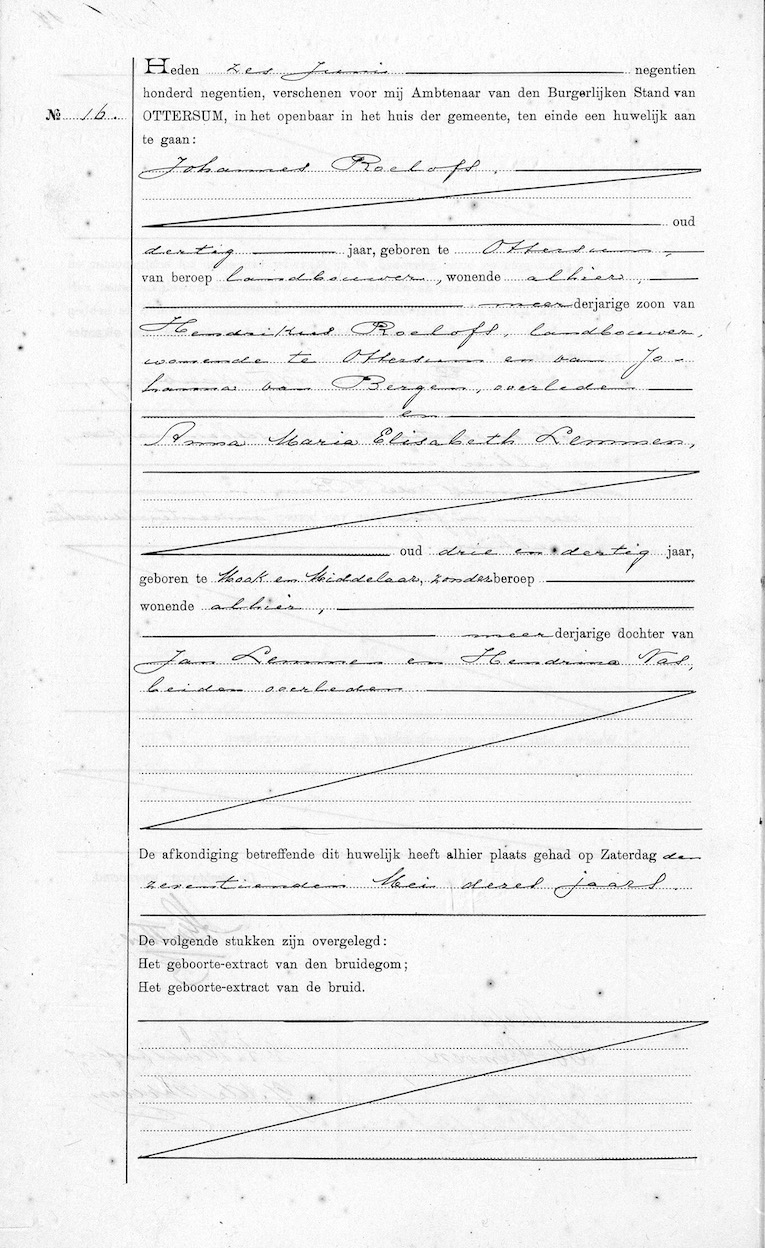 Heden zes Juni negentien
honderd negentien, verschenen voor mij Ambtenaar van den Burgerlijken Stand van
№ 16. OTTERSUM, in het openbaar in het huis der gemeente, ten einde een huwelijk aan
te gaan:
Johannes Roelofs,
oud
dertig jaar, geboren te Ottersum,
van beroep landbouwer, wonende alhier,
meerderjarige zoon van
Hendrikus Roelofs, landbouwer,
wonende te Ottersum en van Jo-
hanna van Bergen, overleden
en
Anna Maria Elisabeth Lemmen,
oud drie en dertig jaar,
geboren te Mook en Middelaar, zonder beroep
wonende alhier,
meerderjarige dochter van
Jan Lemmen en Hendrina Nas,
beiden overleden
De afkondiging betreffende dit huwelijk heeft alhier plaats gehad op Zaterdag den
zeventienden Mei dezes jaars.
De volgende stukken zijn overgelegd:
Het geboorte-extract van den bruidegom;
Het geboorte-extract van de bruid.